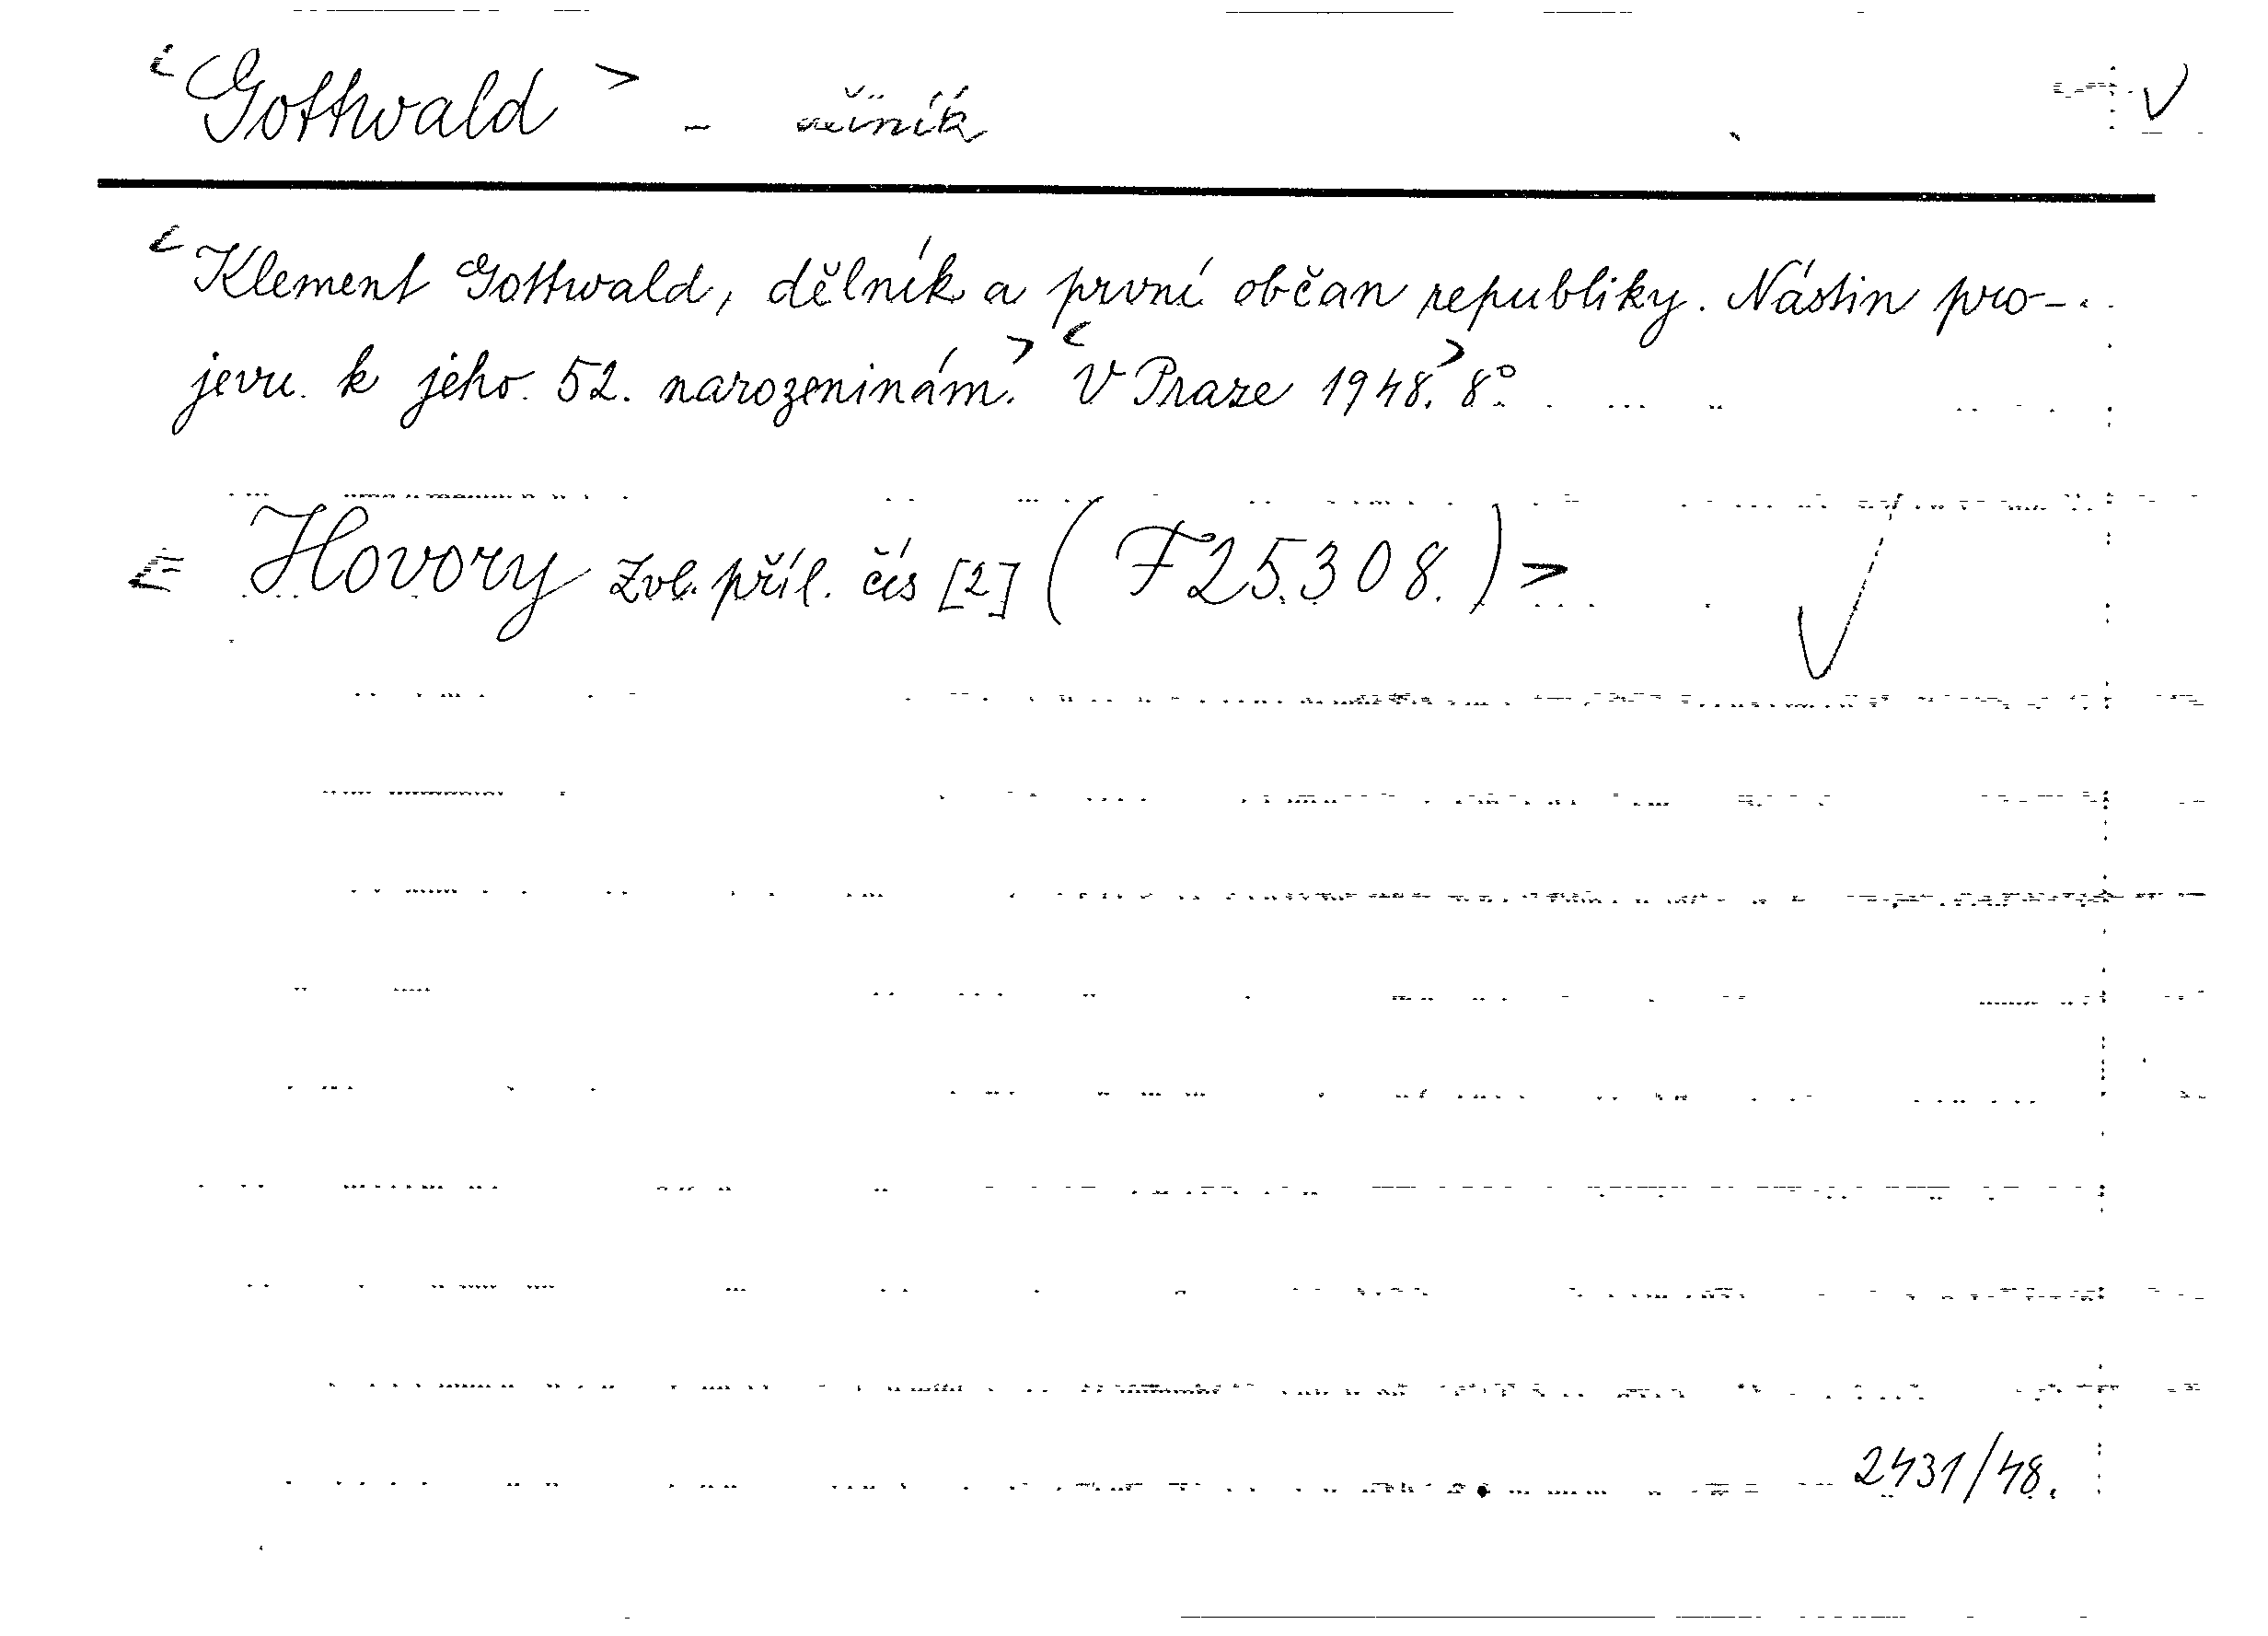 <Gottwald> -
<Klement Gottwald, dělník a první občan republiky. Nástin pro-
jevu k jeho 52. narozeninám.> <V Praze 1948.> 8°.
<Hovory Zvl. příl. čís [2] (F25.308.)>
2431/48.